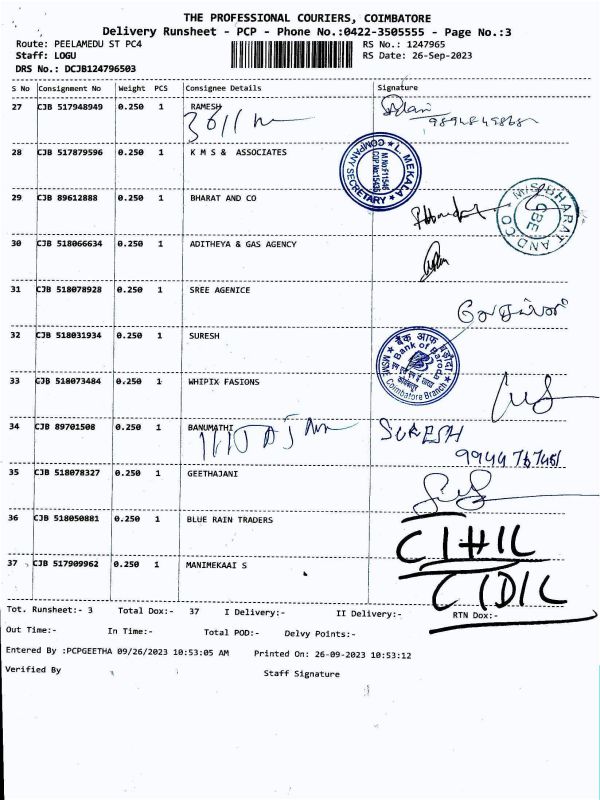 THE PROFESSIONAL COURIERS, COIMBATORE
Delivery Runsheet - PCP - Phone No.:0422-3505555 - Page No.:3
Route: PEELAMEDU ST PC4 RS No.: 1247965
Staff: LOGU RS Date: 26-Sep-2023
DRS No.: DCJB124796503
S No Consignment No Weight PCS Consignee Details Signature
27 CJB 517948949 0.250 1 RAMESH
28 CJB 517879596 0.250 1 K M S & ASSOCIATES
L. MEKALA
COMPANY SECRETARY
29 CJB 89612888 0.250 1 BHARAT AND CO
M/S BHARAT AND CO
CBE
30 CJB 518066634 0.250 1 ADITHEYA & GAS AGENCY
31 CJB 518078928 0.250 1 SREE AGENICE
32 CJB 518031934 0.250 1 SURESH
बैंक ऑफ़ बड़ौदा
Bank of Baroda
MSME Coimbatore Branch
33 CJB 518073484 0.250 1 WHIPIX FASIONS
34 CJB 89701508 0.250 1 BANUMATHI SURESH
35 CJB 518078327 0.250 1 GEETHAJANI
36 CJB 518050881 0.250 1 BLUE RAIN TRADERS
37 CJB 517909962 0.250 1 MANIMEKAAI S
Tot. Runsheet:- 3 Total Dox:- 37 I Delivery:- II Delivery:- RTN Dox:-
Out Time:- In Time:- Total POD:- Delvy Points:-
Entered By :PCPGEETHA 09/26/2023 10:53:05 AM Printed On: 26-09-2023 10:53:12
Verified By Staff Signature